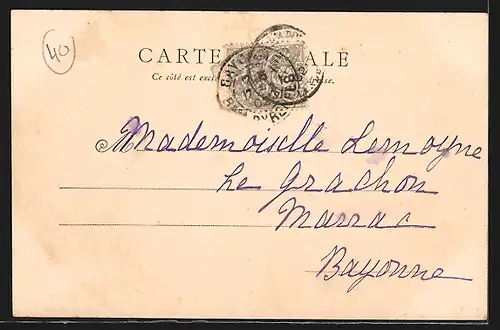 40
CARTE ALE
Ce côté est excl dresse.
BAYO
Mademoiselle Lemoyne
Le Grachon
Marrac
Bayonne